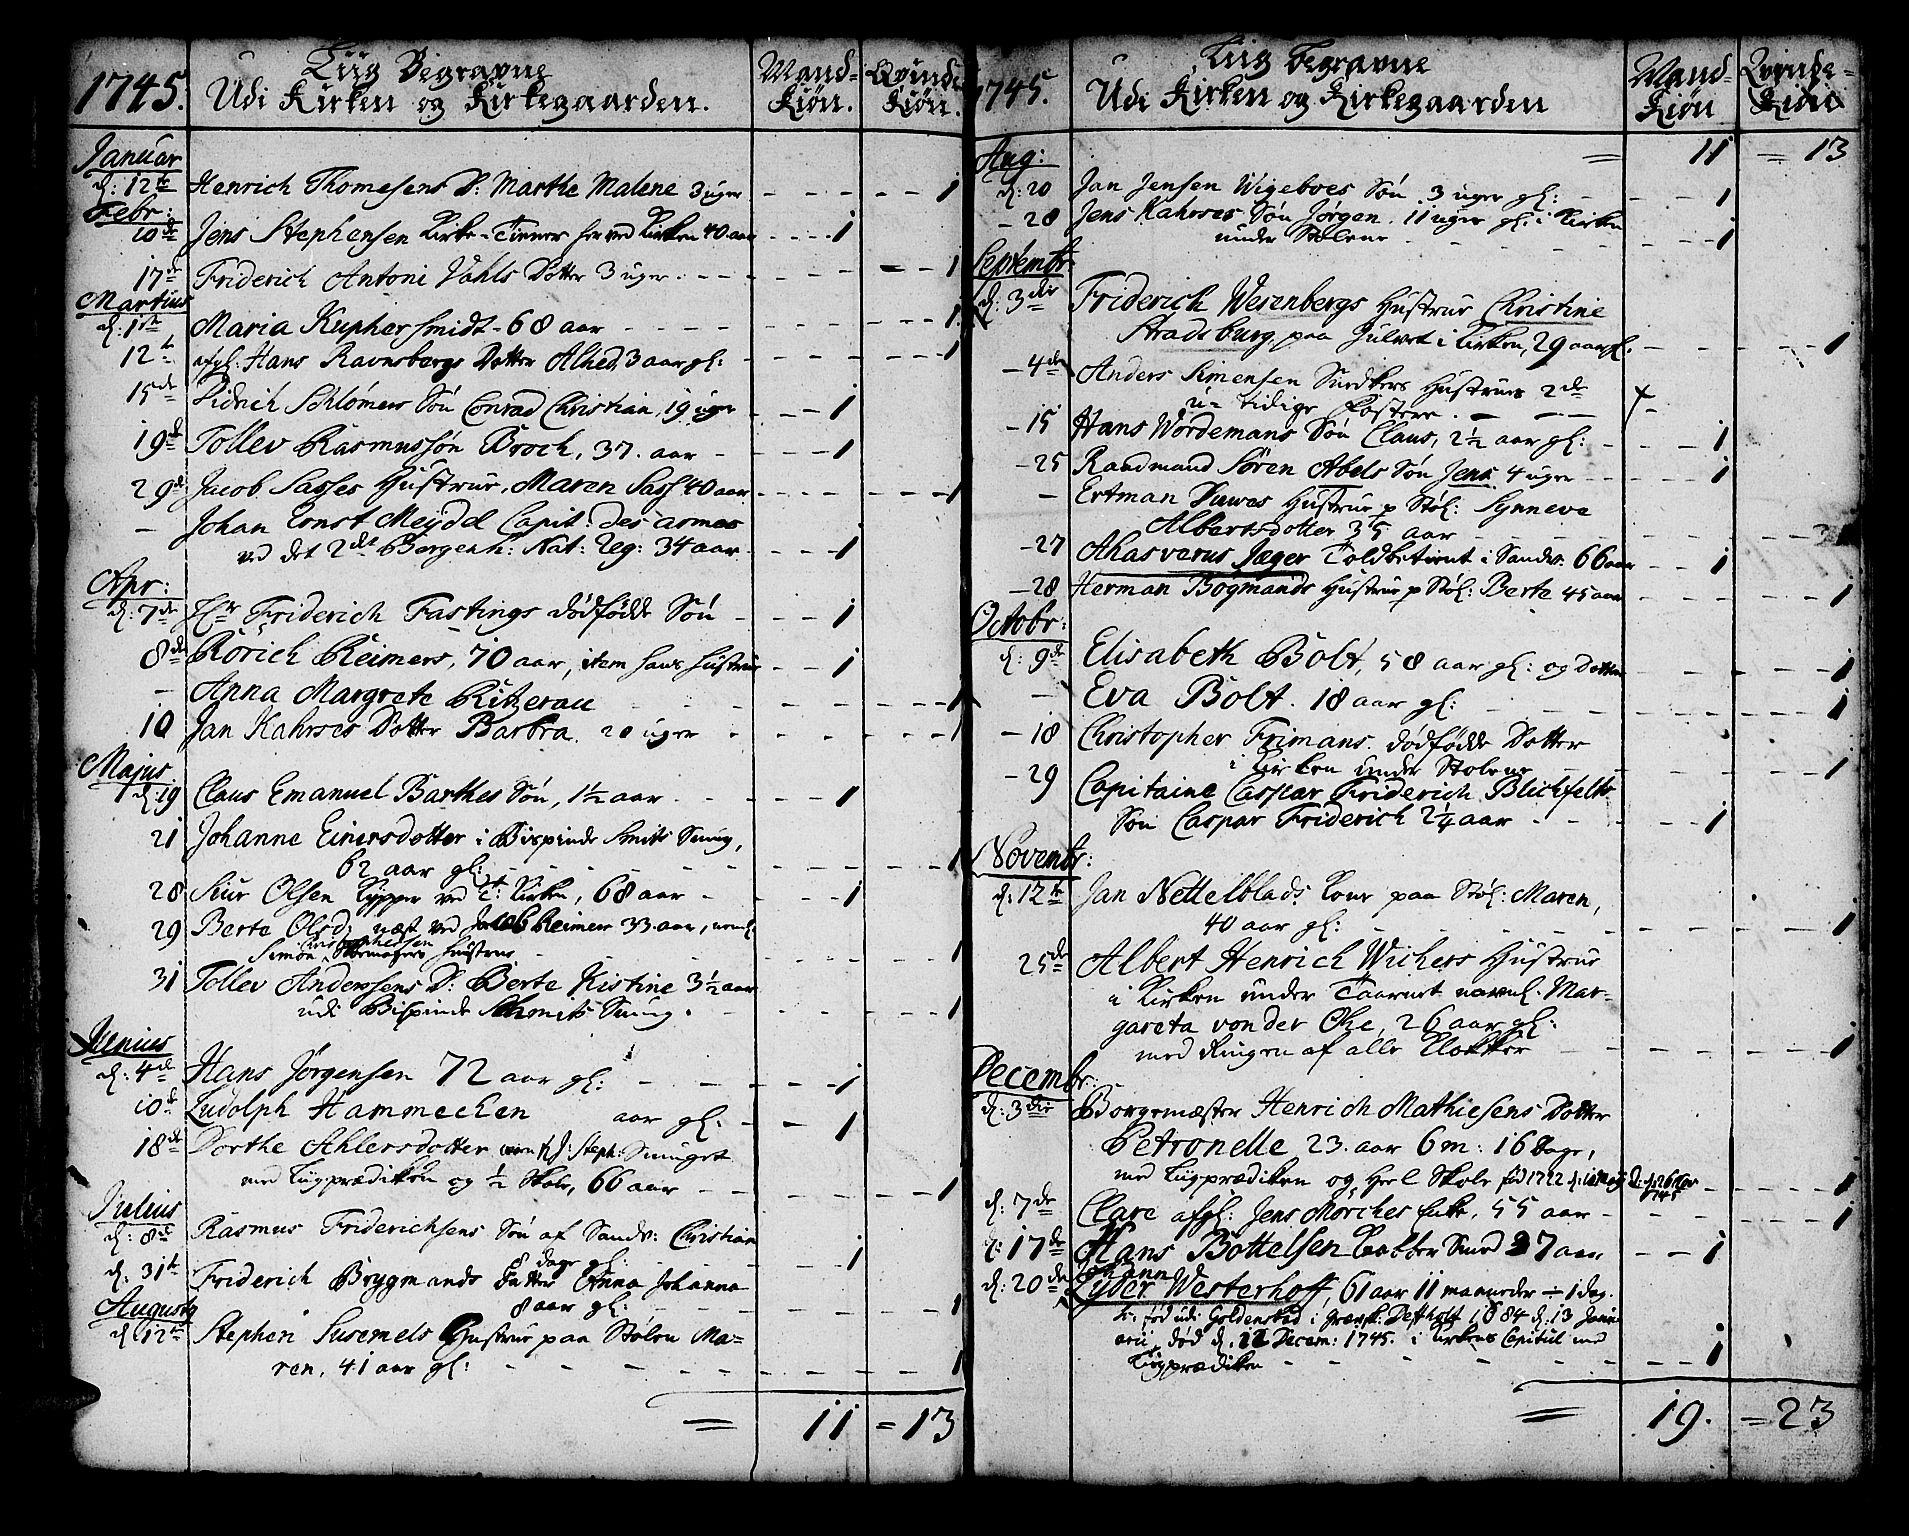 1745. Liig Begravne Mand- Qvinde
Udi Kirken og Kirkegaarden. Kiön. Kiön.
Januar
d: 12te Henrich Thomesens D: Marthe Malene 3 uger - - - - - 1
Febr:
10de Jens Stephensen Kirke-Tienner her ved Kirken 40 aar - - - 1
17de Friderich Antoni Vahls Dotter 3 uger. - - - - - 1
Martius
d: 1ste Maria Kuphersmidt - 68 aar - - - - - 1
12te afgl: Hans Ravnsbergs Dotter Alhed, 3 aar gl: - - - 1
15de Didrich Schlömers Sön Conrad Christian, 19 uger - - - 1
19de Tollev Rasmussön Broch, 37. aar - - - 1
29de Jacob Sasses Hustrue, Maren Sass 40 aar - - - - 1
- Johan Ernst Meydel Capit: des armes
ved det 2det Bergenh: Nat: Reg: 34 aar - - - 1
Apr:
d: 7de Hr Friderich Fastings dödfödde Sön - - - 1
8de Rörich Reimers, 70 aar, item hans Hustrue - - 1
- Anna Margrete Ritzerau - - - - 1
10 Jan Kahrses Dotter Barbra. 20 uger - - - - 1
Majus
d: 19 Claus Emanuel Barthes Sön, 1½ aar - - - - 1
21 Johanne Einersdotter i Bispinde Smits Smug,
62 aar gl: - - - - - 1
28 Siur Olsen Kypper ved + Kirken, 68 aar - - - 1
29 Berte Olsd: næst ved Jacob Reimers 33 aar,
Simon Christophersen Hustrue - - - - 1
31 Tollev Anderssens D: Berte Kistine 3½ aar
udi Bispinde Schmits Smug. - - - - 1
Junius
d: 4de Hans Jørgensen 72 aar gl: - - - - 1
10de Ludolph Hammechen aar gl: - - 1
18de Dorthe Ahlersdotter Steph: Smuget
med Liigprædiken og ½ Skole, 66 aar - - - - 1
Julius
d: 8de Rasmus Friderichsens Sön af Sandv: Christian
8 dage gl: - - - 1
d: 31te Friderich Brygmands Datter Anna Johanna
8 aar gl: - - - - 1
Augusty
d 12te Stephen Susemels Hustrue paa Stölen Ma-
ren, 41 aar gl: - - - - - 1
= 11 = 13
1745. Liig Begravne Mand- Qvinde-
Udi Kirken og Kirkegaarden Kiön Kiön
Aug: = 11 = 13
d: 20 Jan Jensen Wigeboes Sön 3 uger gl: - - - 1
- 28 Jens Kahrses Sön Jørgen. 11 uger gl: i Kirken
under Stolene - - - - 1
Septembr:
d: 3die Friderich Wesenbergs Hustrue Christine
Stradsburg paa Gulvet i Kirken, 29 aar gl. - - - 1
- 4de Anders Simensen Hustrues 2de
u-tidige Fostere. - - - +
- 15 Hans Wördemans Sön Claus, 2½ aar gl: - - - 1
- 25 Raadmand Sören Abels Sön Jens 4 uger - - - 1
- Ertman Duwes Hustrue p Stöl: Synneve
Albertsdotter 35 aar - - - -
- 27 Ahasverus Jæger Toldbetient i Sandv. 66 aar - - 1
- 28 Herman Bögmands Hustrue p Stöl: Berte 45 aar - - - 1
Octobr:
d: 9de Elisabeth Bolt, 58 aar gl: og Dotter - - - - 1
- Eva Bolt. 18 aar gl: - - - - 1
- 18 Christopher Frimans dödfödde Dotter
i Kirken under Stolene - - - - 1
- 29 Capitaine Caspar Friderich Blichfelts
Sön Caspar Friderich 2¼ aar - - - 1
Novembr:
d: 12te Jan Nettelblads Kone paa Stöl: Maren,
40 aar gl: - - - - - 1
25de Albert Henrich Wichers Hustrue
i Kirken under Taarnet navnl: Mar-
gareta von der Ohe, 26 aar gl:
med Ringen af alle Klokker - - - - 1
Decembr:
d: 3die Borgemæster Henrich Mathiesens Dotter
Petronelle 23. aar 6 m: 16 Dage,
med Liigprædiken og Heel Skole föd 1722 - - - 1
d: 7de Clare afgl: Jens Morches Enke, 55 aar - - - - 1
d: 17de Hans Bottelsen Kobber Smed 27 aar - - 1
d: 20de Johann Lyder Westerhoff, 61 aar 11 maaneder ÷ 1 dag.
er föd udi Goldensted i Grevsk: 1684 d: 13 Janu-
arii, död d. 12 Decem: 1745. i Kirkens Capitul med
Liigprædiken - - - - 1
= 19. = 23